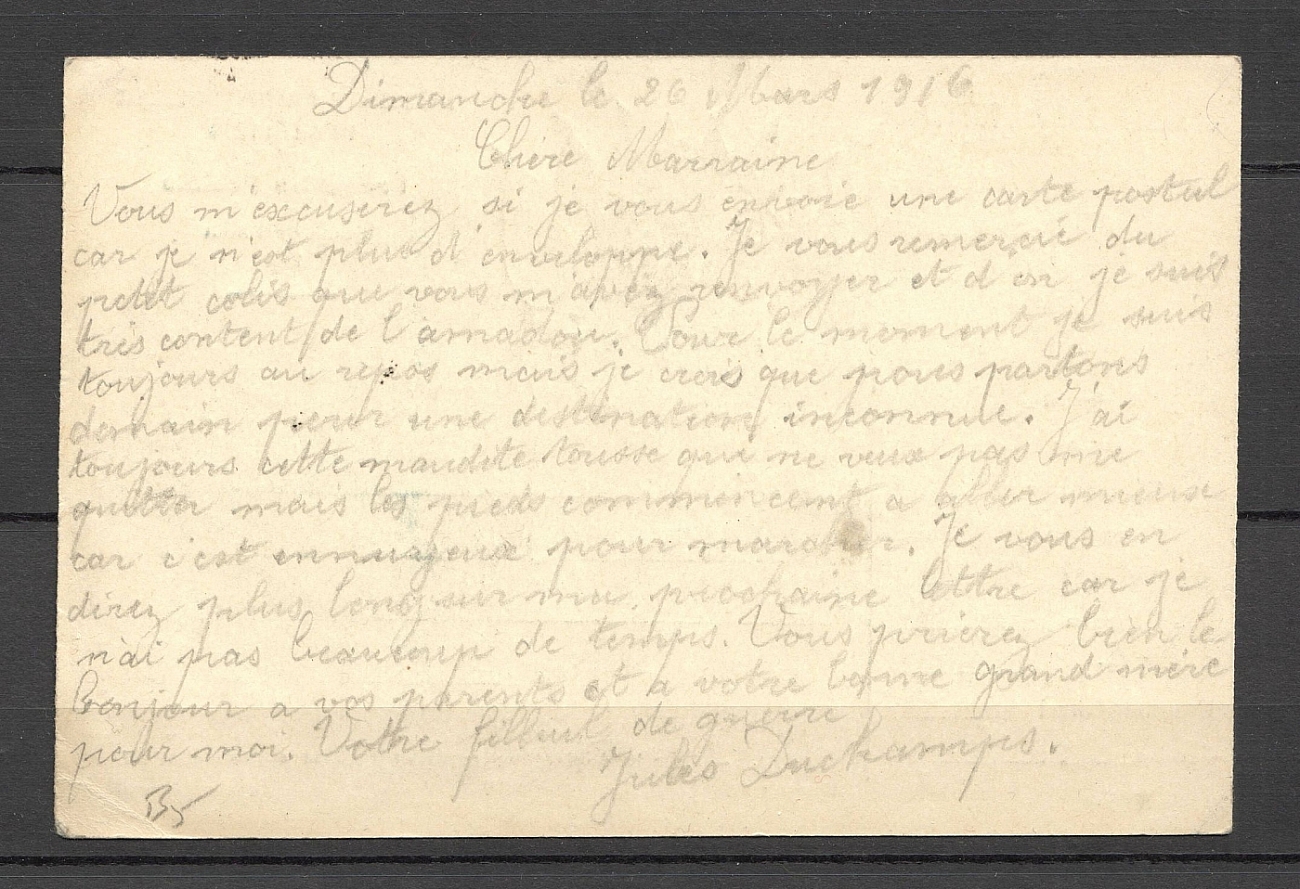 Dimanche le 26 Mars 1916
Chère Marraine
Vous m'excuserez si je vous envoie une carte postal
car je n'est plus d'enveloppe. Je vous remercié du
petit colis que vous m'avez renvoyer et d'en je suis
très content de l'amadou. Pour le moment je suis
toujours au repos mais je crois que nous partons
demain pour une destination inconnue. J'ai
toujours cette maudite tousse que ne veux pas me
quitter mais les pieds commencent a aller mieux
car c'est ennuyeux pour marcher. Je vous en
direz plus long sur ma prochaine lettre car je
n'ai pas beaucoup de temps. Vous prierez bien le
bonjour a vos parents et a votre bonne grand mère
pour moi. Votre filleul de guerre
Jules Duchamps.